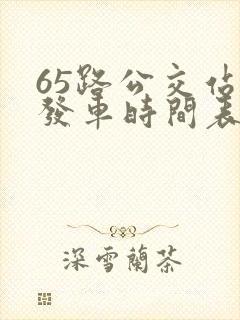 65路公交站
發車時間表
深雪蘭茶